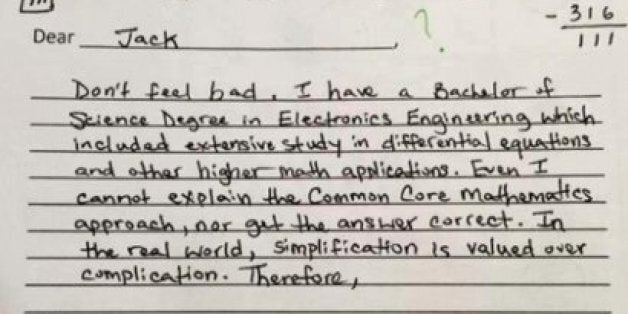 - 316
111
Dear Jack, ?
Don't feel bad. I have a Bachelor of
Science Degree in Electronics Engineering which
included extensive study in differential equations
and other higher math applications. Even I
cannot explain the Common Core Mathematics
approach, nor get the answer correct. In
the real world, simplification is valued over
complication. Therefore,